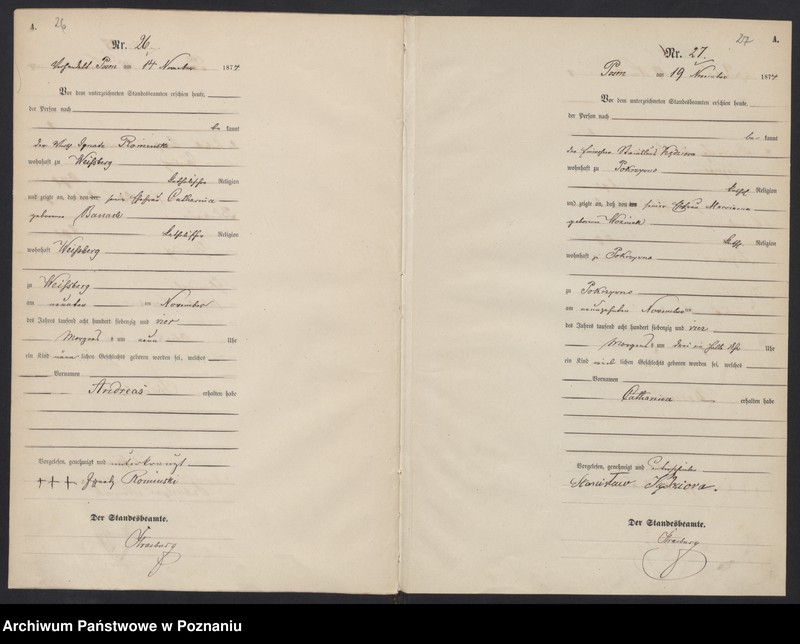 26
A.
Nr. 26.
Verhandelt Posen am 14 November 1874
Vor dem unterzeichneten Standesbeamten erschien heute,
der Person nach
be kannt
der Ignatz Rominski
wohnhaft zu Weißberg
katholischer Religion
und zeigte an, daß von seiner Ehefrau Catharina
geborene Banach
katholischer Religion
wohnhaft Weißberg
zu Weißberg
am neunten November
des Jahres tausend acht hundert siebenzig und vier
Morgens um neun Uhr
ein Kind männ lichen Geschlechts geboren worden sei, welches
Vornamen
Andreas erhalten habe
Vorgelesen, genehmigt und unterkreuzt
+++ Ignatz Rominski
Der Standesbeamte.
27
A.
Nr. 27.
Posen am 19 November 1874
Vor dem unterzeichneten Standesbeamten erschien heute,
der Person nach
be kannt
der Stanislaus
wohnhaft zu Pokrzywno
kathol Religion
und zeigte an, daß von seiner Ehefrau Marianna
geborene Wozniak
kath. Religion
wohnhaft zu Pokrzywno
zu Pokrzywno
am neunzehnten November
des Jahres tausend acht hundert siebenzig und vier
Morgens um drei ein halb Uhr
ein Kind weib lichen Geschlechts geboren worden sei, welches
Vornamen
Catharina erhalten habe
Vorgelesen, genehmigt und unterschrieben
Stanisław
Der Standesbeamte.
Archiwum Państwowe w Poznaniu